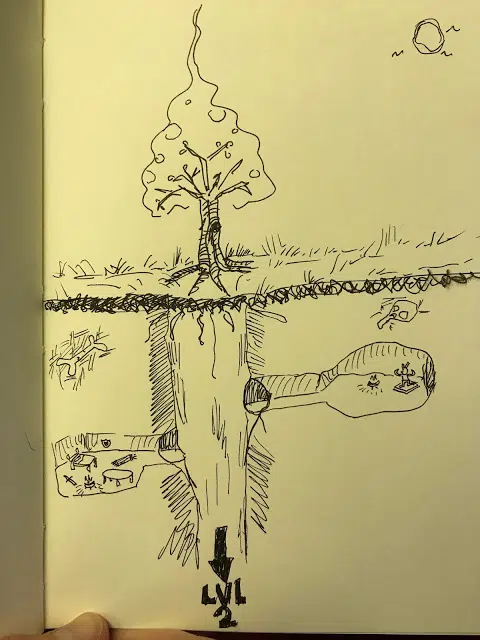 LVL
2